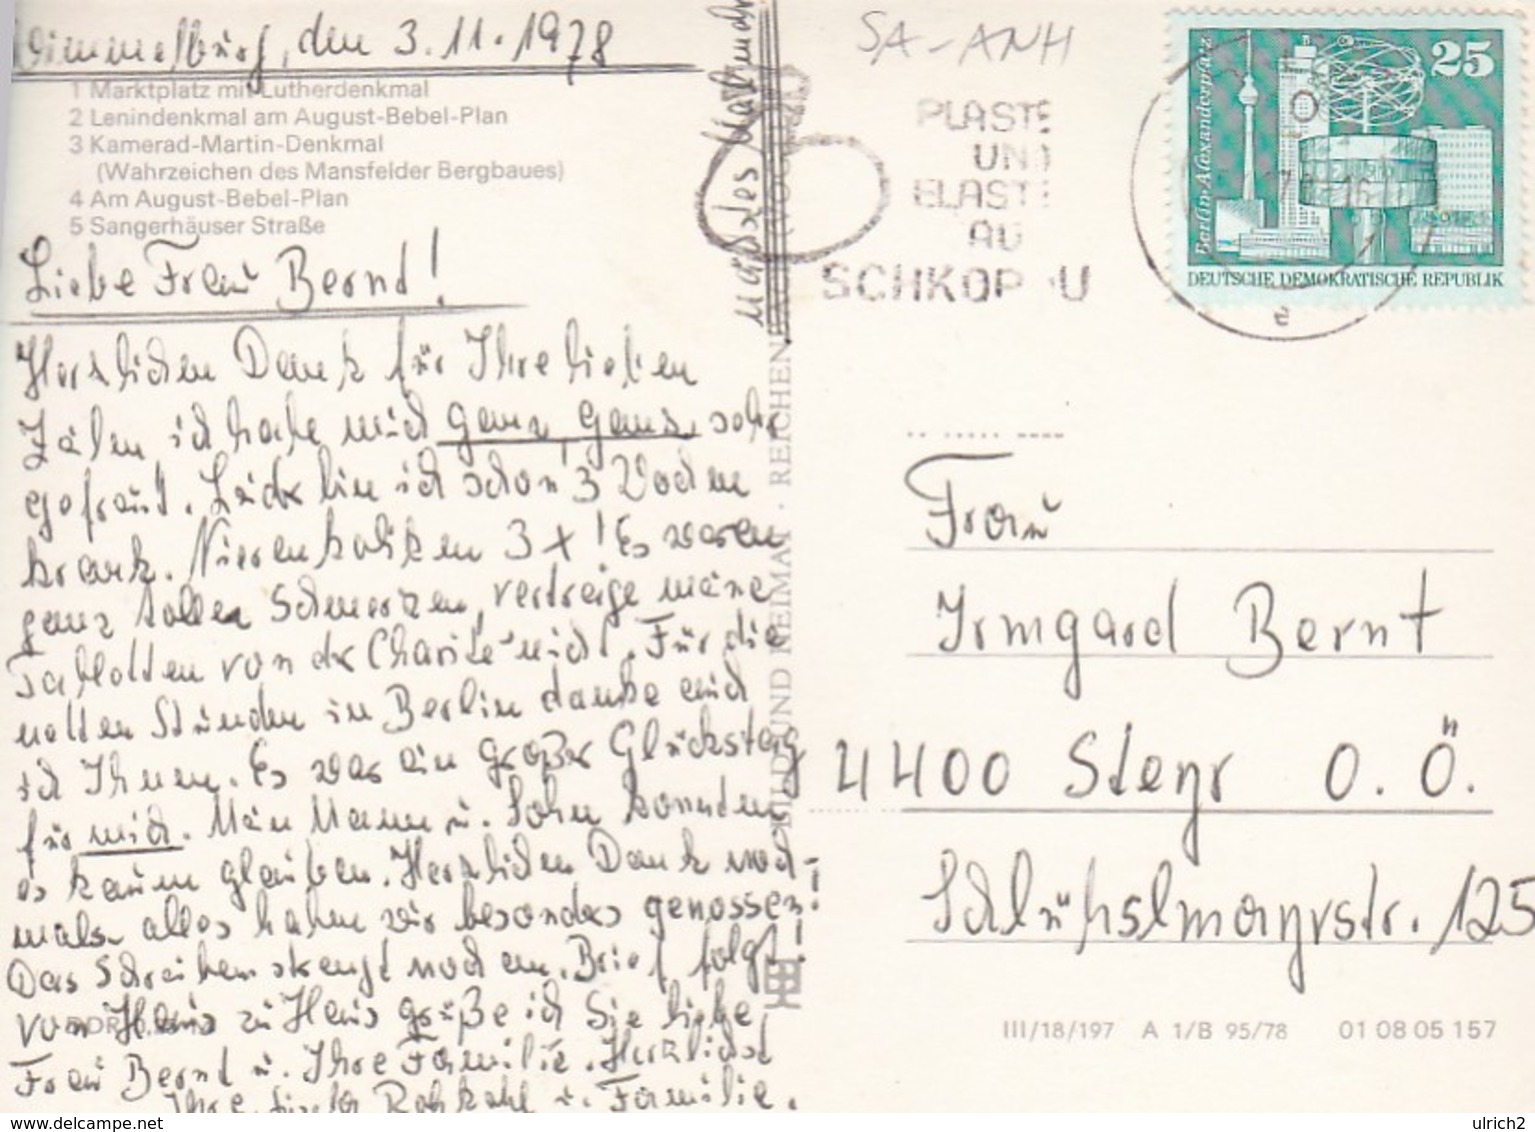 Wimmelburg, den 3.11.1978
1 Marktplatz mit Lutherdenkmal
2 Lenindenkmal am August-Bebel-Plan
3 Kamerad-Martin-Denkmal
(Wahrzeichen des Mansfelder Bergbaues)
4 Am August-Bebel-Plan
5 Sangerhäuser Straße
Liebe Frau Bernd!
Herzlichen Dank für Ihre lieben
Zeilen ich habe mich ganz, ganz sehr
gefreut. Leider bin ich schon 3 Wochen
krank. Nierenkoliken 3 x! Es waren
ganz tollen Schmerzen, vertrage meine
Tabletten von der Charité nicht. Für die
netten Stunden in Berlin danke auch
ich Ihnen. Es war ein großer Glückstag
für mich. Mein Mann u. Sohn konnten
es kaum glauben. Herzlichen Dank noch-
mals alles haben wir besonders genossen!
Das Schreiben strengt noch an. Brief folgt!
Von Haus zu Haus grüße ich Sie liebe
Frau Bernd u. Ihre Familie. Herzlichst
Ihre u. Familie.
BILD UND HEIMAT · REICHEN
SA-ANH
PLASTE
UND
ELASTE
AU
SCHKOP U
25
Berlin-Alexanderplatz
DEUTSCHE DEMOKRATISCHE REPUBLIK
Frau
Irmgard Bernt
4400 Steyr O.Ö.
Schlühslmayrstr. 125
III/18/197 A 1/B 95/78 01 08 05 157
www.delcampe.net
ulrich2